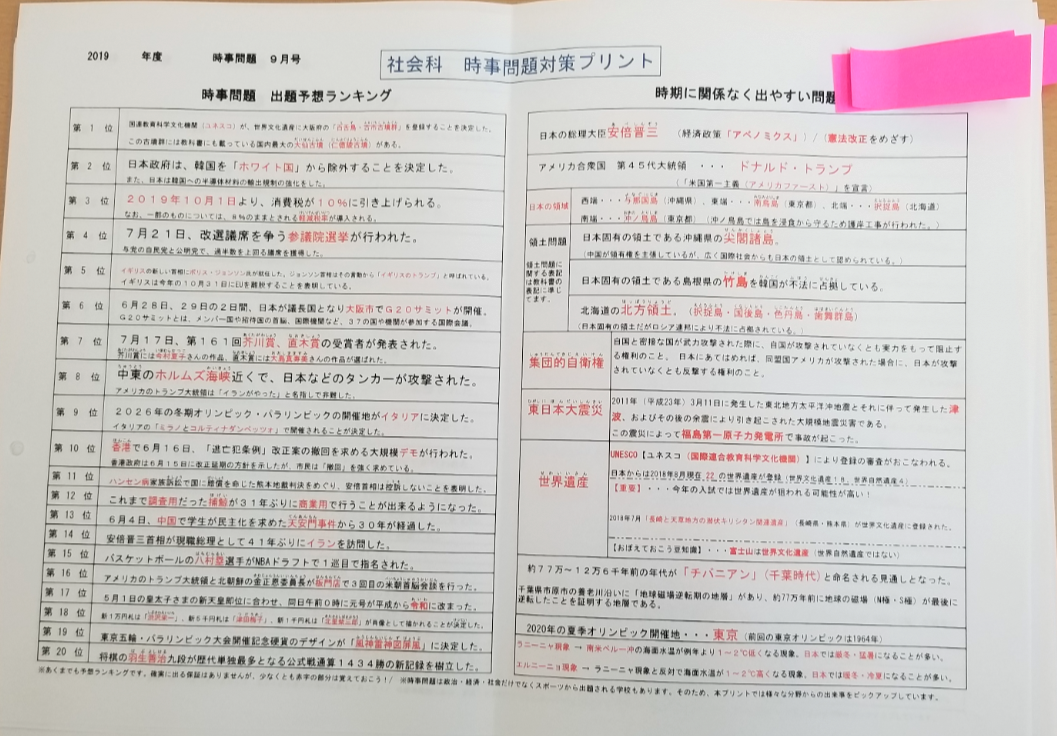 2019 年度 時事問題 9月号
社会科 時事問題対策プリント
時事問題 出題予想ランキング
第1位 国連教育科学文化機関（ユネスコ）が、世界文化遺産に大阪府の「百舌鳥・古市古墳群」を登録することを決定した。
この古墳群には教科書にも載っている国内最大の大仙古墳（仁徳陵古墳）がある。
第2位 日本政府は、韓国を「ホワイト国」から除外することを決定した。
また、日本は韓国への半導体材料の輸出規制の強化をした。
第3位 2019年10月1日より、消費税が10%に引き上げられる。
なお、一部のものについては、8%のままとされる軽減税率が導入される。
第4位 7月21日、改選議席を争う参議院選挙が行われた。
与党の自民党と公明党で、過半数を上回る議席を獲得した。
第5位 イギリスの新しい首相にボリス・ジョンソン氏が就任した。ジョンソン首相はその言動から「イギリスのトランプ」と呼ばれている。
イギリスは今年の10月31日にEUを離脱することを表明している。
第6位 6月28日、29日の2日間、日本が議長国となり大阪市でG20サミットが開催。
G20サミットとは、メンバー国や招待国の首脳、国際機関など、37の国や機関が参加する国際会議。
第7位 7月17日、第161回芥川賞、直木賞の受賞者が発表された。
芥川賞には今村夏子さんの作品、直木賞には大島真寿美さんの作品が選ばれた。
第8位 中東のホルムズ海峡近くで、日本などのタンカーが攻撃された。
アメリカのトランプ大統領は「イランがやった」と名指しで非難した。
第9位 2026年の冬期オリンピック・パラリンピックの開催地がイタリアに決定した。
イタリアの「ミラノとコルティナダンペッツォ」で開催されることが決定した。
第10位 香港で6月16日、「逃亡犯条例」改正案の撤回を求める大規模デモが行われた。
香港政府は6月15日に改正延期の方針を示したが、市民は「撤回」を強く求めている。
第11位 ハンセン病家族訴訟で国に賠償を命じた熊本地裁判決をめぐり、安倍首相は控訴しないことを表明した。
第12位 これまで調査用だった捕鯨が31年ぶりに商業用で行うことが出来るようになった。
第13位 6月4日、中国で学生が民主化を求めた天安門事件から30年が経過した。
第14位 安倍晋三首相が現職総理として41年ぶりにイランを訪問した。
第15位 バスケットボールの八村塁選手がNBAドラフトで1巡目で指名された。
第16位 アメリカのトランプ大統領と北朝鮮の金正恩委員長が板門店で3回目の米朝首脳会談を行った。
第17位 5月1日の皇太子さまの新天皇即位に合わせ、同日午前0時に元号が平成から令和に改まった。
第18位 新1万円札は「渋沢栄一」、新5千円札は「津田梅子」、新1千円札は「北里柴三郎」が肖像として描かれることが決定した。
第19位 東京五輪・パラリンピック大会開催記念硬貨のデザインが「風神雷神図屏風」に決定した。
第20位 将棋の羽生善治九段が歴代単独最多となる公式戦通算1434勝の新記録を樹立した。
時期に関係なく出やすい問題
日本の総理大臣安倍晋三 （経済政策「アベノミクス」）／（憲法改正をめざす）
アメリカ合衆国 第45代大統領 ・・・ ドナルド・トランプ
（「米国第一主義（アメリカファースト）」を宣言）
日本の領域 西端・・・与那国島（沖縄県）、東端・・・南鳥島（東京都）、北端・・・択捉島（北海道）
南端・・・沖ノ鳥島（東京都） （沖ノ鳥島では島を浸食から守るため護岸工事が行われた。）
領土問題 日本固有の領土である沖縄県の尖閣諸島。
（中国が領有権を主張しているが、広く国際社会からも日本の領土として認められている。）
領土問題に関する表記は教科書の表記に準じてます。
日本固有の領土である島根県の竹島を韓国が不法に占拠している。
北海道の北方領土。（択捉島・国後島・色丹島・歯舞群島）
（日本固有の領土だがロシア連邦により不法に占拠されている。）
集団的自衛権 自国と密接な国が武力攻撃された際に、自国が攻撃されていなくとも実力をもって阻止す
る権利のこと。 日本にあてはめれば、同盟国アメリカが攻撃された場合に、日本が攻撃
されていなくとも反撃する権利のこと。
東日本大震災 2011年（平成23年）3月11日に発生した東北地方太平洋沖地震とそれに伴って発生した津
波、およびその後の余震により引き起こされた大規模地震災害である。
この震災によって福島第一原子力発電所で事故が起こった。
世界遺産 UNESCO【ユネスコ（国際連合教育科学文化機関）】により登録の審査がおこなわれる。
日本からは2018年8月現在 22 の世界遺産が登録（世界文化遺産18、世界自然遺産4）
【重要】・・・今年の入試では世界遺産が狙われる可能性が高い！
2018年7月「長崎と天草地方の潜伏キリシタン関連遺産」（長崎県・熊本県）が世界文化遺産に登録された。
【おぼえておこう豆知識】・・・富士山は世界文化遺産（世界自然遺産ではない）
約77万～12万6千年前の年代が「チバニアン」（千葉時代）と命名される見通しとなった。
千葉県市原市の養老川沿いに「地球磁場逆転期の地層」があり、約77万年前に地球の磁場（N極・S極）が最後に
逆転したことを証明する地層である。
2020年の夏季オリンピック開催地・・・東京（前回の東京オリンピックは1964年）
ラニーニャ現象 → 南米ペルー沖の海面水温が例年より1～2℃低くなる現象、日本では厳冬・猛暑になることが多い。
エルニーニョ現象 → ラニーニャ現象と反対で海面水温が1～2℃高くなる現象、日本では暖冬・冷夏になることが多い。
※あくまでも予想ランキングです。確実に出る保証はありませんが、少なくとも赤字の部分は覚えておこう！／ ※時事問題は政治・経済・社会だけでなくスポーツから出題される学校もあります。そのため、本プリントでは様々な分野からの出来事をピックアップしています。